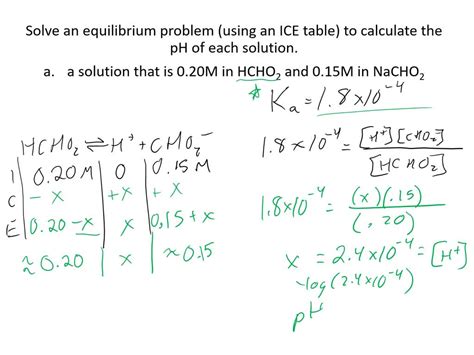 Solve an equilibrium problem (using an ICE table) to calculate the
pH of each solution.
a. a solution that is 0.20M in HCHO₂ and 0.15M in NaCHO₂
* Ka = 1.8×10⁻⁴
HCHO₂ ⇌ H⁺ + CHO₂⁻
I 0.20M 0 0.15M
C -x +x +x
E 0.20-x x 0.15+x
≈0.20 x ≈0.15
1.8×10⁻⁴ = [H⁺][CHO₂⁻]
[HCHO₂]
1.8×10⁻⁴ = (x)(.15)
(.20)
x = 2.4×10⁻⁴ = [H⁺]
-log(2.4×10⁻⁴)
pH